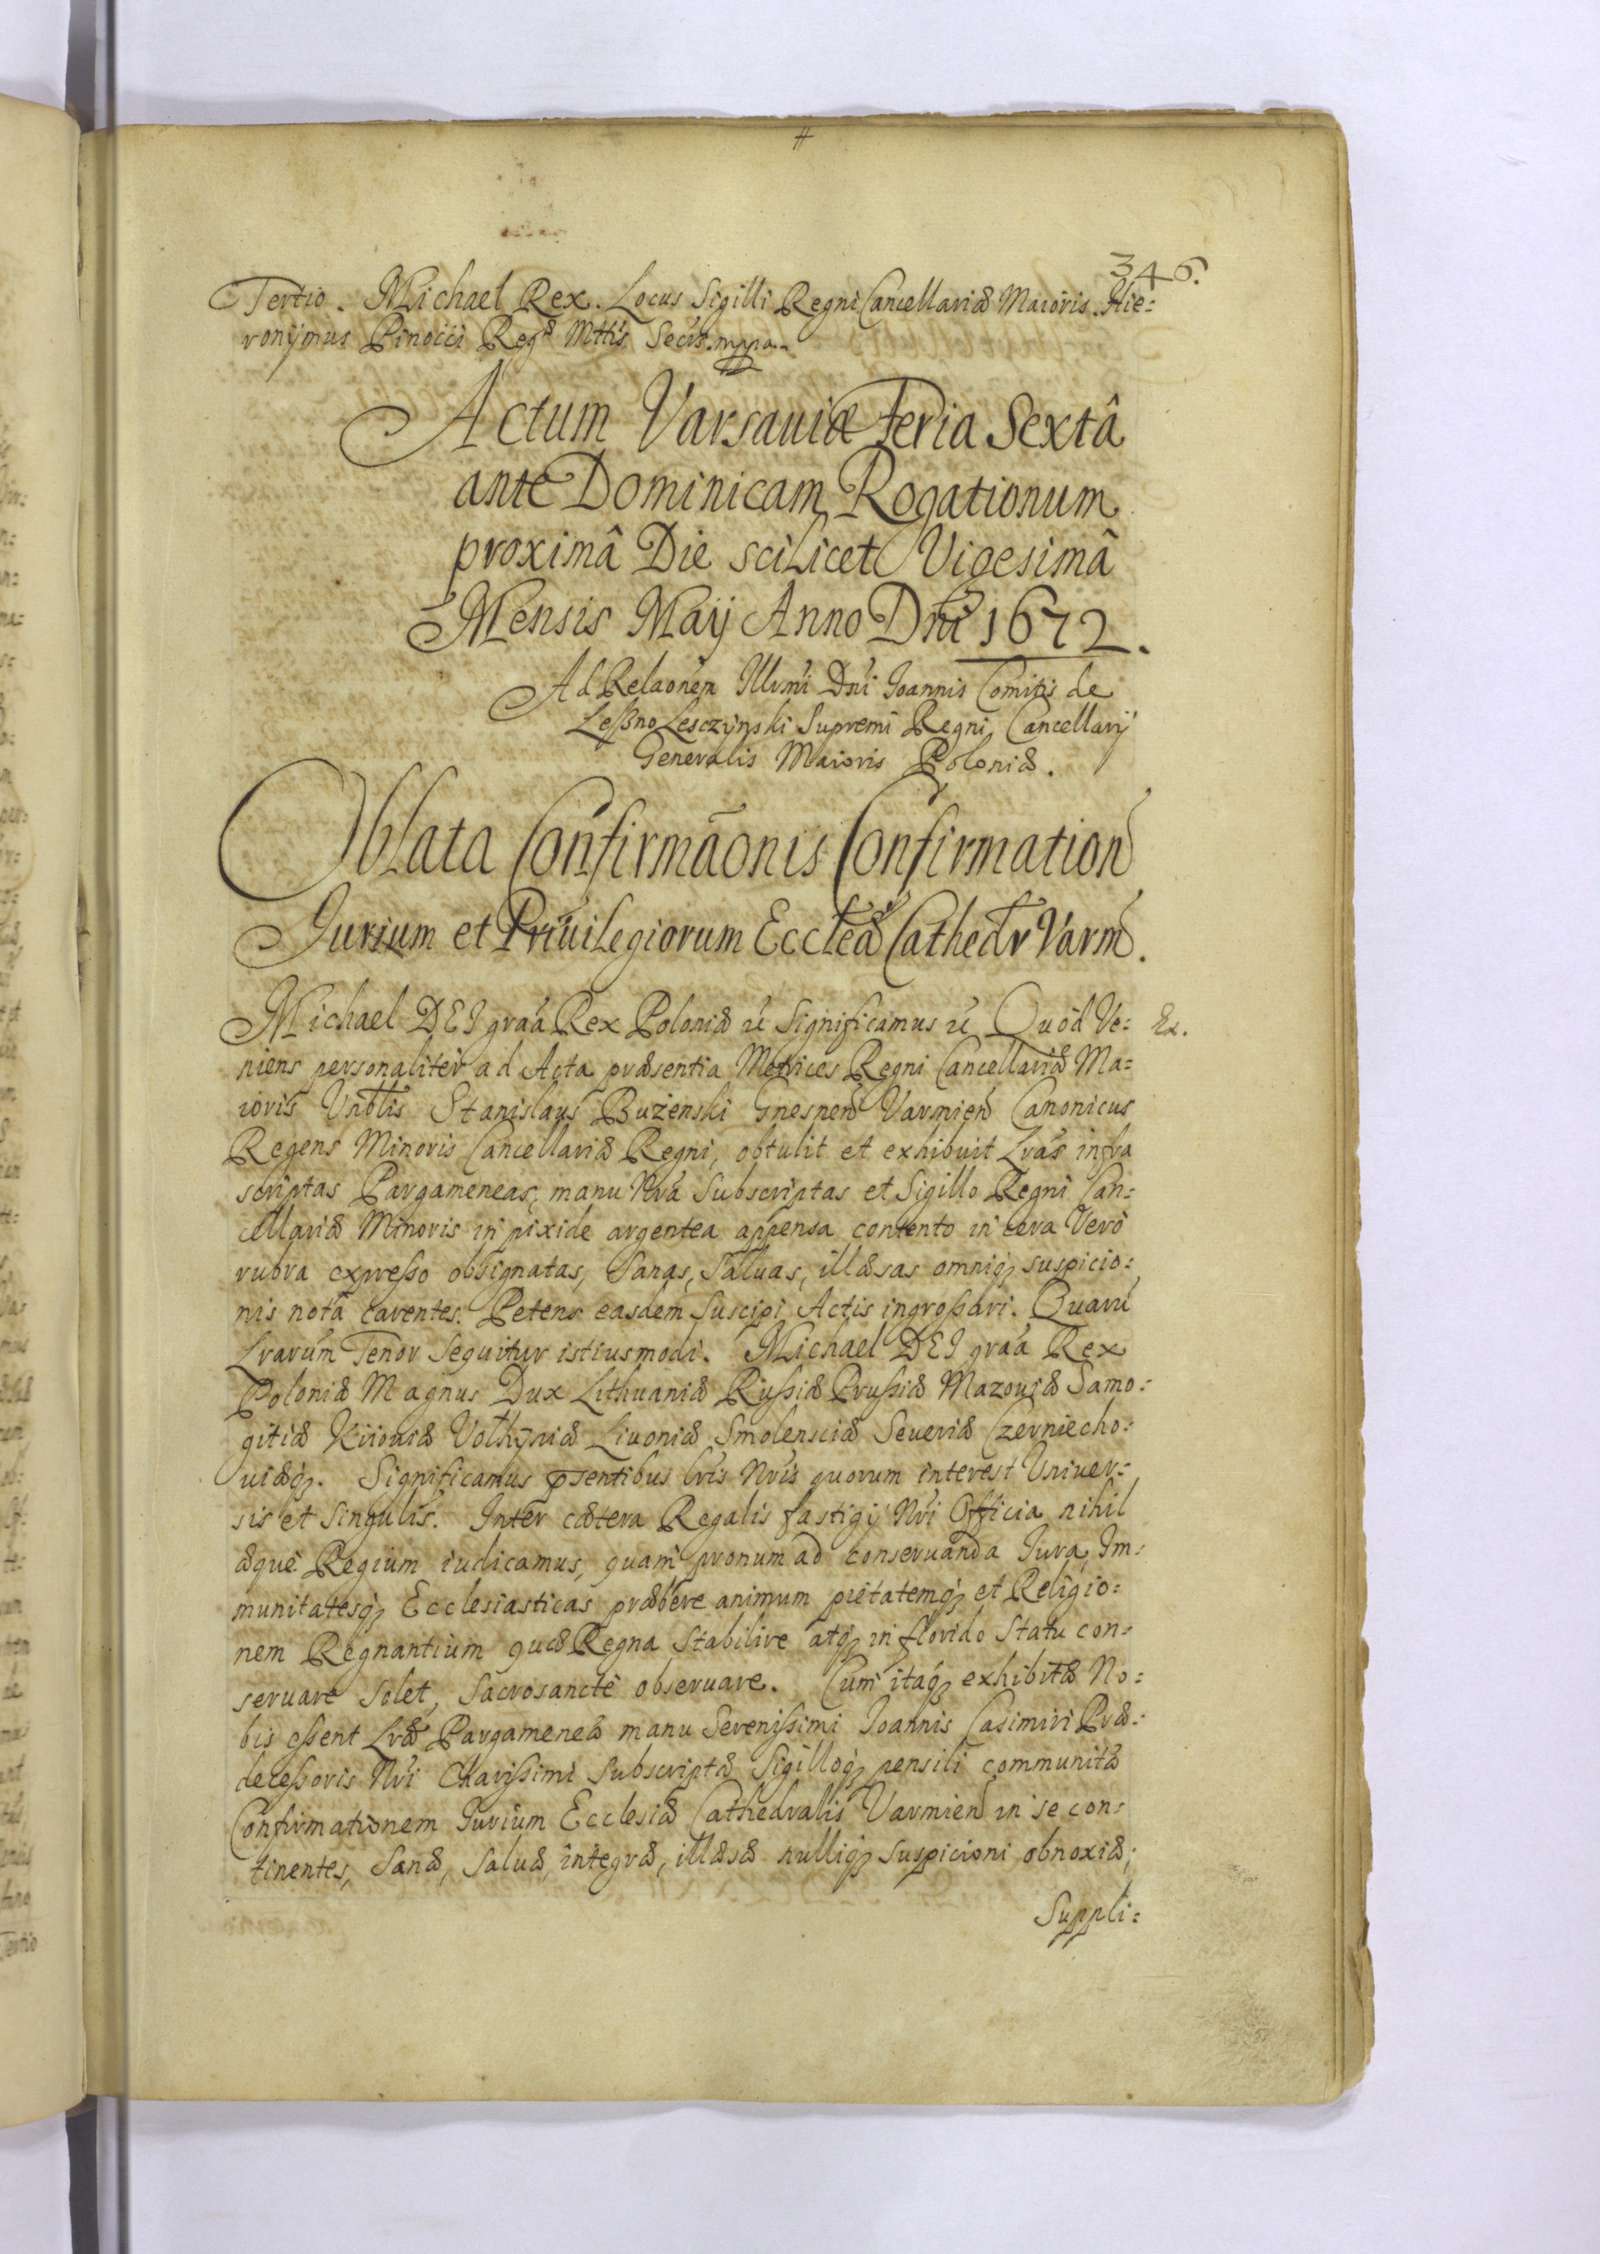 346.
Tertio. Michael Rex. Locus Sigilli Regni Cancellariæ Maioris. Hie:
ronÿmus Pinocci Regæ Mttis Secrs. mppa.
Actum Varsauiæ Feria Sextâ
ante Dominicam Rogationum
proximâ Die scilicet Vigesimâ
Mensis Maÿ Anno Dni 1672.
Ad Relaonem Illrmi Dni Joannis Comitis de
Leßno Lesczÿnski Supremi Regni Cancellarÿ
Generalis Maioris Poloniæ.
Oblata Confirmãonis Confirmation
Jurium et Priuilegiorum Eccleæ Cathedr Varm.
Michael DEI graã Rex Poloniæ &c Significamus &c Quòd Ve: Ex.
niens personaliter ad Acta præsentia Metrices Regni Cancellariæ Ma:
ioris Vnblis Stanislaus Bużenski Gnesnen Varmien Canonicus
Regens Minoris Cancellariæ Regni, obtulit et exhibuit Lras infra
scriptas Pargameneas, manu Nra Subscriptas et Sigillo Regni Can:
cellariæ Minoris in pixide argentea appensa contento in cera Verò
rubra expreßo obsignatas, Sanas, Saluas, illæsas omniq; suspicio:
nis notâ carentes. Petens easdem suscipi Actis ingroßari. Quarũ
Lrarum Tenor Sequitur istiusmodi. Michael DEI graã Rex
Poloniæ Magnus Dux Lithuaniæ Rußiæ Prußiæ Mazouiæ Samo:
gitiæ Kijouiæ Volhÿniæ Liuoniæ Smolensciæ Seueriæ Czerniecho:
uiæq;. Significamus p̃sentibus Lris Nris quorum interest Vniuer:
sis et singulis. Inter cætera Regalis fastigÿ Nri Officia nihil
æquè Regium iudicamus, quam pronum ad conseruanda Jura, Im:
munitatesq; Ecclesiasticas præbere animum pietatemq; et Religio:
nem Regnantium quæ Regna Stabilire atq; in florido Statu con:
seruare solet, Sacrosanctè obseruare. Cum itaq; exhibitæ No:
bis eßent Lræ Pargameneæ manu Serenißimi Joannis Casimiri Præ:
deceßoris Nri Charißimi Subscriptæ Sigilloq; pensili communitæ
Confirmationem Jurium Ecclesiæ Cathedralis Varmien in se con:
tinentes, Sanæ, Saluæ, integræ, illæsæ nulliq; Suspicioni obnoxiæ;
Suppli: